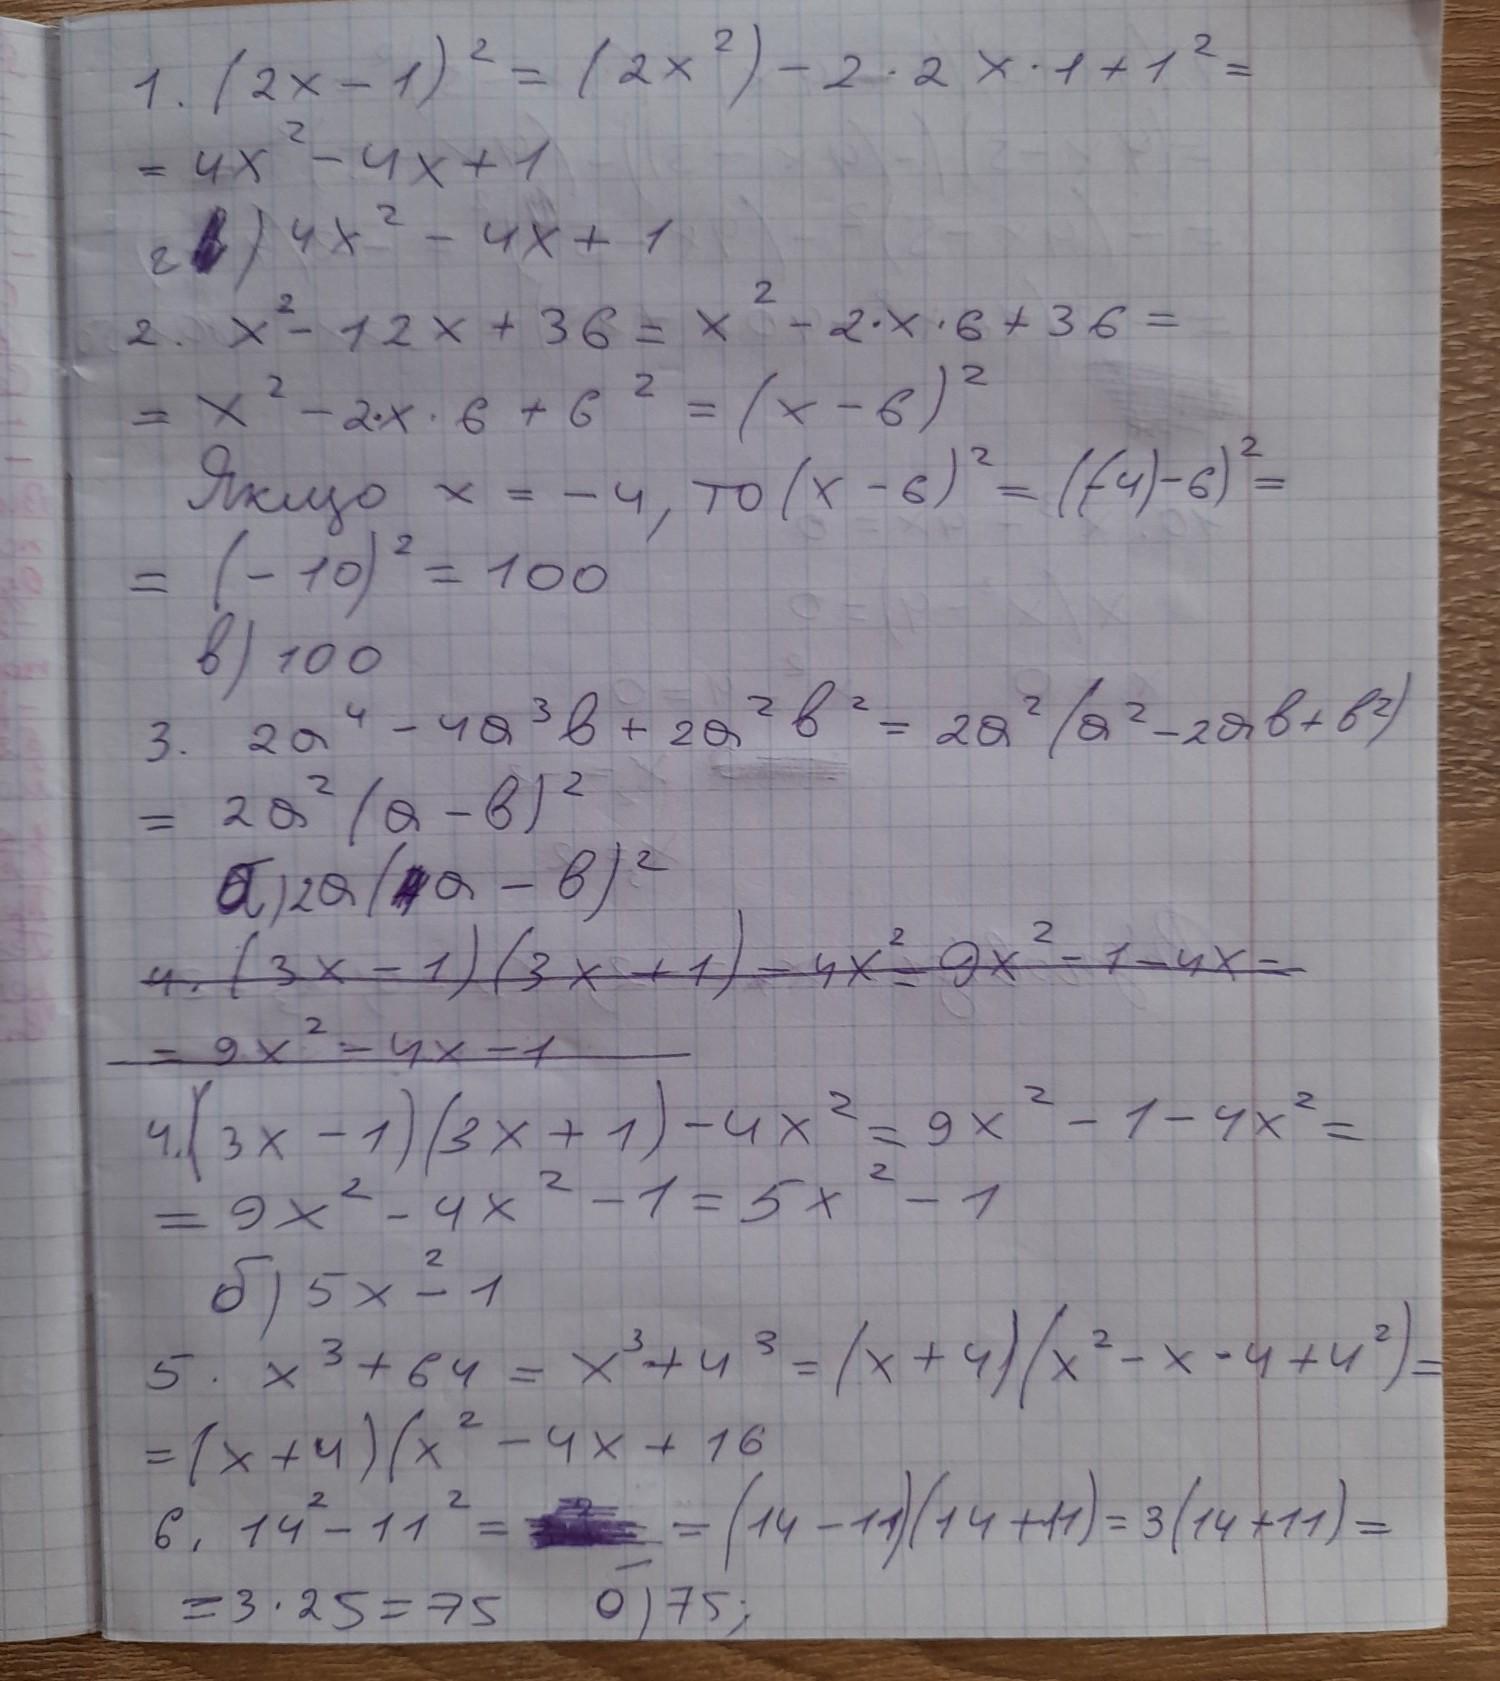 1. (2x - 1)² = (2x²) - 2 · 2x · 1 + 1² =
= 4x² - 4x + 1
г) 4x² - 4x + 1
2. x² - 12x + 36 = x² - 2·x·6 + 36 =
= x² - 2·x·6 + 6² = (x - 6)²
Якщо x = -4, то (x - 6)² = ((-4) - 6)² =
= (-10)² = 100
в) 100
3. 2a⁴ - 4a³b + 2a²b² = 2a²(a² - 2ab + b²)
= 2a²(a - b)²
б) 2a(a - b)²
4. (3x - 1)(3x + 1) - 4x² = 9x² - 1 - 4x =
= 9x² - 4x - 1
4. (3x - 1)(3x + 1) - 4x² = 9x² - 1 - 4x² =
= 9x² - 4x² - 1 = 5x² - 1
б) 5x² - 1
5. x³ + 64 = x³ + 4³ = (x + 4)(x² - x · 4 + 4²) =
= (x + 4)(x² - 4x + 16
6. 14² - 11² = = (14 - 11)(14 + 11) = 3(14 + 11) =
= 3 · 25 = 75 б) 75;